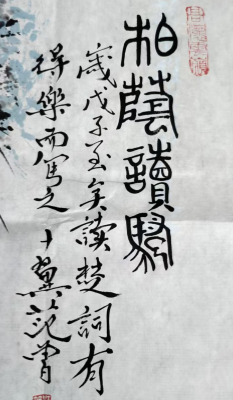 柏蔭讀騷
歲戊子至矣讀楚詞有
得樂而寫之十翼范曾